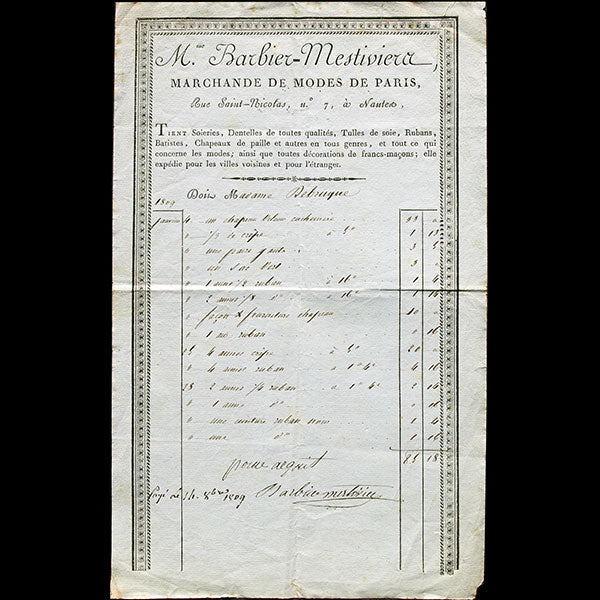 M.me Barbier-Mestiviera,
MARCHANDE DE MODES DE PARIS,
Rue Saint-Nicolas, n.º 7, à Nantes,
TIENT Soieries, Dentelles de toutes qualités, Tulles de soie, Rubans,
Batistes, Chapeaux de paille et autres en tous genres, et tout ce qui
concerne les modes; ainsi que toutes décorations de francs-maçons; elle
expédie pour les villes voisines et pour l'étranger.
Doit Madame
1809
janvier 4 un chapeau velour
crêpe à 1
" une paire gants 3
" un 3 "
ruban à 16s 1 4
" 2 à 16s 1
" façon & fourniture chapeau 10 "
" 1 ruban " 16
4 aunes crêpe à 5# 20 "
" 4 aunes ruban à 1# 4s 4 16
28 2 aunes ruban à 1# 4s 2 14
" 1 aune dº " 16
" une ceinture ruban noir 1 4
" une dº 1 16
pour acquit 18
1809 Barbier mestivier